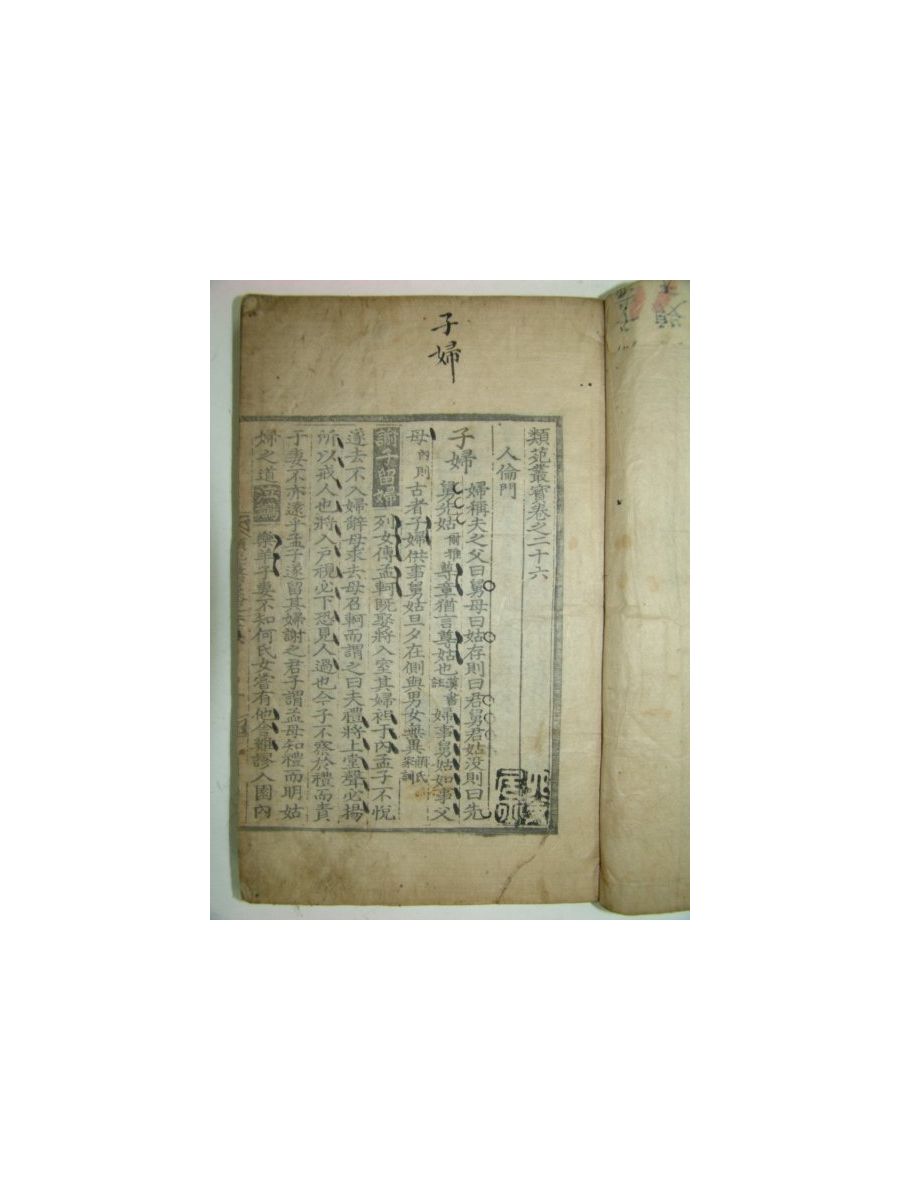 子婦
類苑叢寶卷之二十六
人倫門
子婦 婦稱夫之父曰舅母曰姑存則曰君舅君姑没則曰先
舅先姑 爾雅 尊章猶言尊姑也 漢書註 婦事舅姑如事父
母 內則 古者子婦供事舅姑旦夕在側與男女無異 顔氏家訓
諭子留婦 列女傳孟軻既娶將入室其婦袒于內孟子不悅
遂去不入婦辭母求去母召軻而謂之曰夫禮將上堂聲必揚
所以戒人也將入戶視必下恐見人過也今子不察於禮而責
于妻不亦遠乎孟子遂留其婦謝之君子謂孟母知禮而明姑
婦之道 樂羊子妻不知何氏女嘗有他舍雞謬入園內